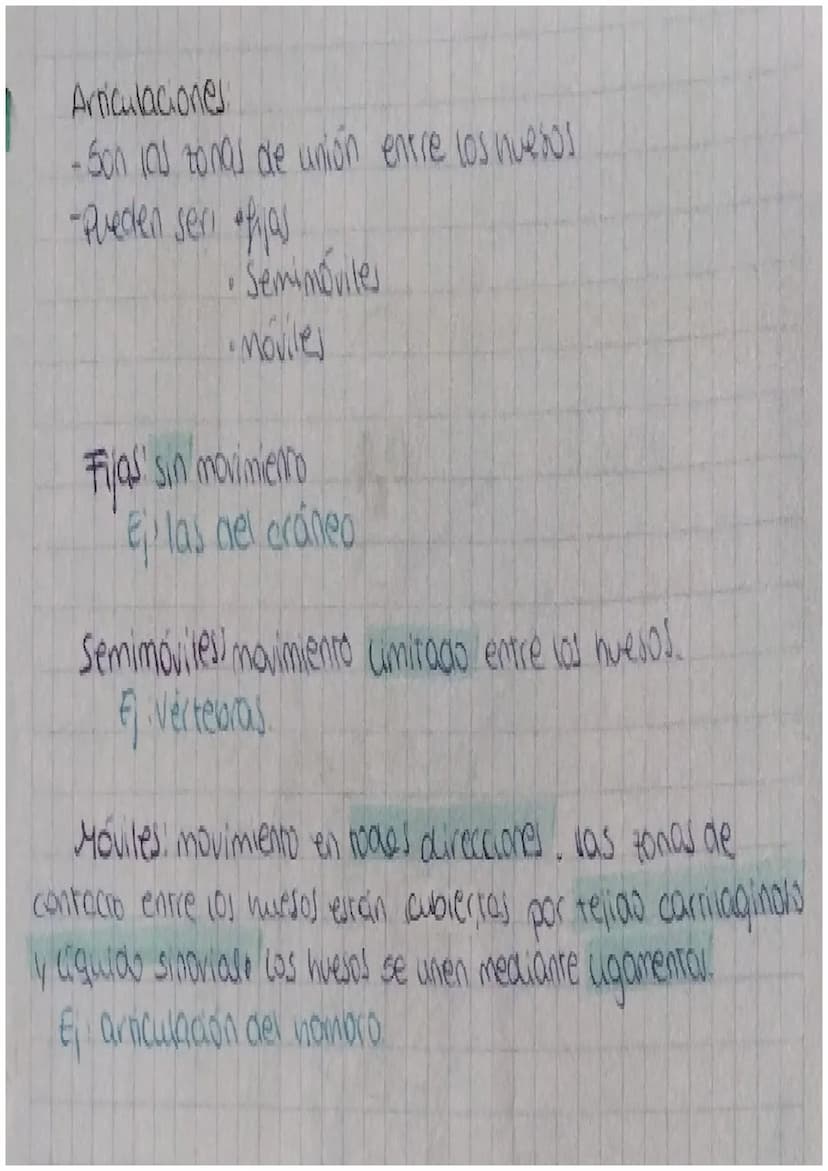 Articulaciones:
- Son las zonas de unión entre los huesos
- Pueden ser: • fijas
• Semimóviles
• Móviles
Fijas: sin movimiento
Ej: las del cráneo
Semimóviles: movimiento limitado entre los huesos.
Ej: Vértebras.
Móviles: movimiento en todas direcciones. las zonas de
contacto entre los huesos están cubiertas por tejido cartilaginoso
y líquido sinovial. Los huesos se unen mediante ligamentos.
Ej: articulación del hombro